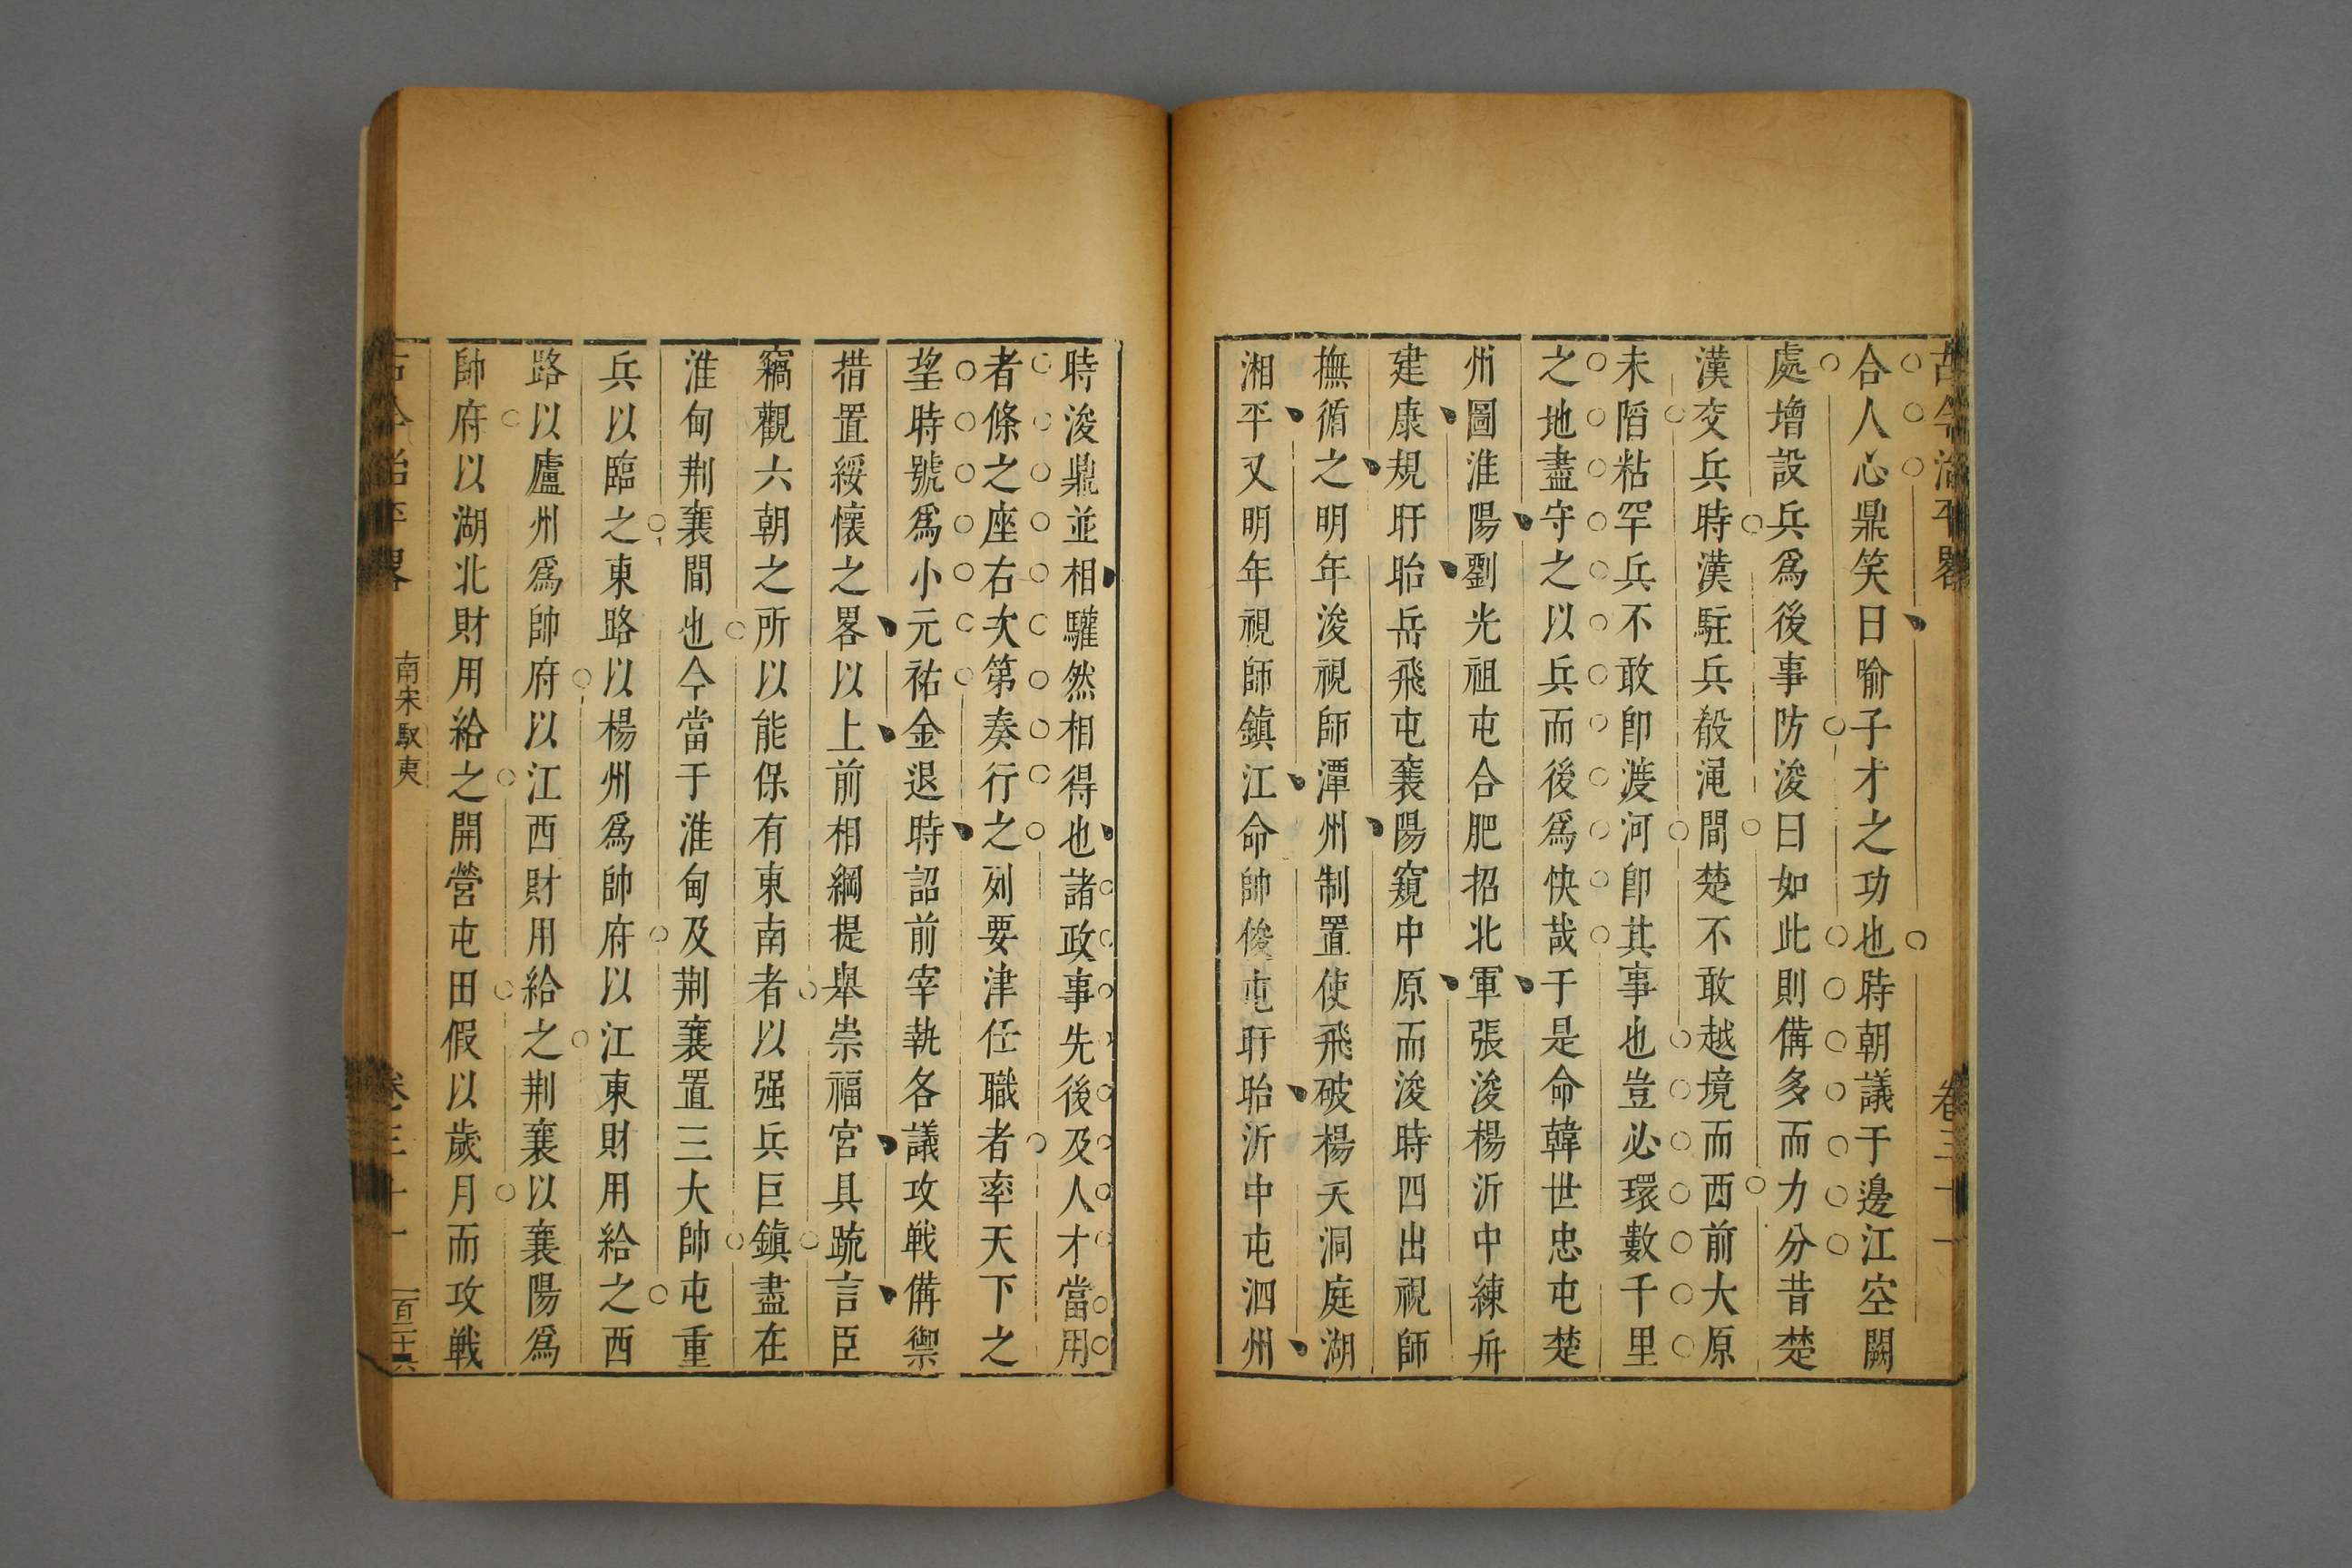 古今治平畧 卷三十一
合人心鼎笑曰喻子才之功也時朝議于邊江空闕
處增設兵爲後事防浚曰如此則備多而力分昔楚
漢交兵時漢駐兵殽澠間楚不敢越境而西前大原
未䧟粘罕兵不敢卽渡河卽其事也豈必環數千里
之地盡守之以兵而後爲快哉于是命韓世忠屯楚
州圖淮陽劉光祖屯合肥招北軍張浚楊沂中練兵
建康規盱眙岳飛屯襄陽窺中原而浚時四出視師
撫循之明年浚視師潭州制置使飛破楊夭洞庭湖
湘平又明年視師鎮江命帥俊屯盱眙沂中屯泗州
時浚鼎並相驩然相得也諸政事先後及人才當用
者條之座右次第奏行之列要津任職者率天下之
望時號爲小元祐金退時詔前宰執各議攻戰備禦
措置綏懷之畧以上前相綱提舉崇福宮具䟽言臣
竊觀六朝之所以能保有東南者以强兵巨鎮盡在
淮甸荆襄間也今當于淮甸及荆襄置三大帥屯重
兵以臨之東路以楊州爲帥府以江東財用給之西
路以廬州爲帥府以江西財用給之荆襄以襄陽爲
帥府以湖北財用給之開營屯田假以歲月而攻戰
古今治平畧 南宋馭夷 卷三十一